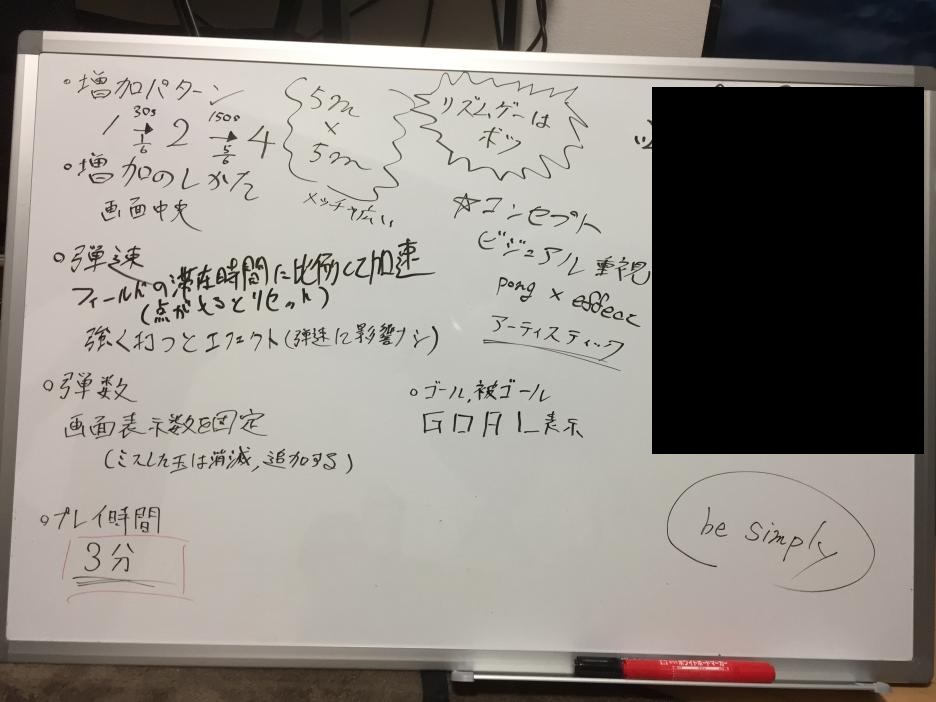 ・増加パターン
1 30s → 1/6 2 150s → 5/6 4
・増加のしかた
画面中央
5m
×
5m
メッチャ広い
リズムゲーは
ボツ
☆コンセプト
ビジュアル重視
pong × effect
アーティスティック
・弾速
フィールドの滞在時間に比例して加速
(点が入るとリセット)
強く打つとエフェクト(弾速に影響ナシ)
・弾数
画面表示数を固定
(ミスした玉は消滅,追加する)
・ゴール,被ゴール
GOAL表示
・プレイ時間
3分
be simply
ホワイトボードマーカー